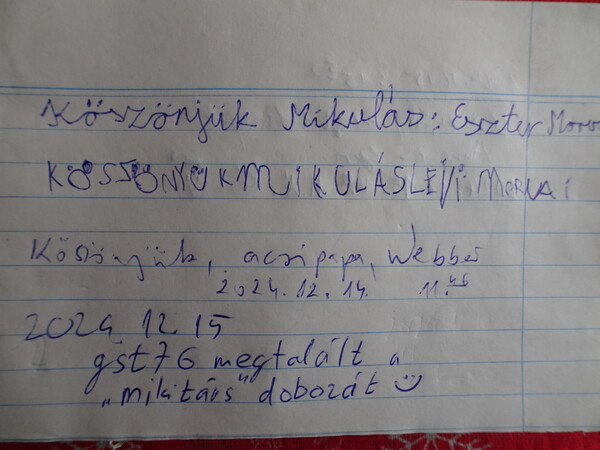 Köszönjük Mikulás: Eszter
KÖSSÖNYÜK MIKULÁS LEVI
Köszönjük, acsipapa, Webber
2024.12.14. 11.46
2024 12.15
gst76 megtalált a
„mikitárs" dobozát